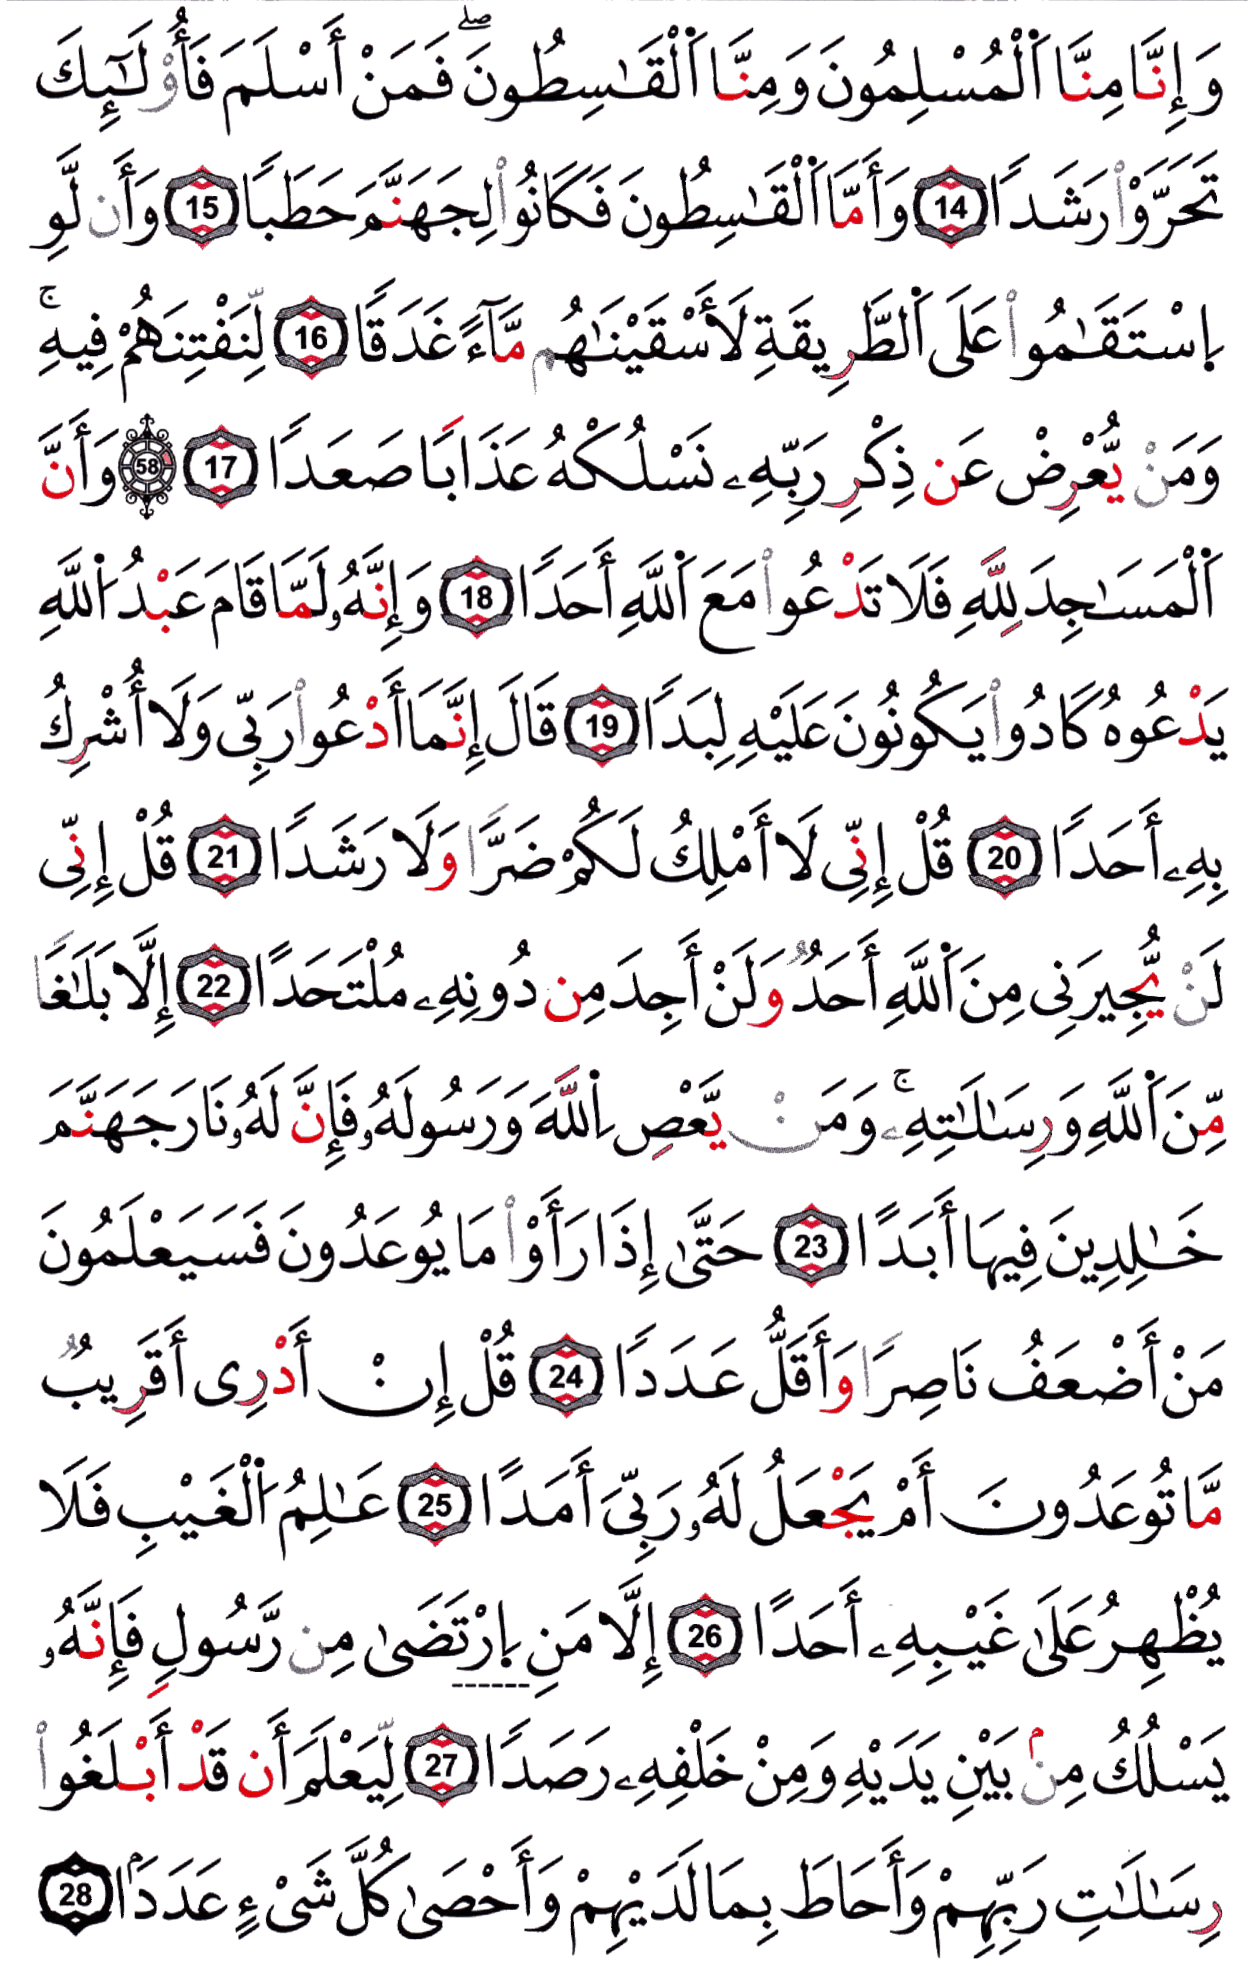 وَإِنَّا مِنَّا اَ۬لْمُسْلِمُونَ وَمِنَّا اَ۬لْقَٰسِطُونَۖ فَمَنْ أَسْلَمَ فَأُوْلَٰٓئِكَ
تَحَرَّوْاْ رَشَدًا 14 وَأَمَّا اَ۬لْقَٰسِطُونَ فَكَانُواْ لِجَهَنَّمَ حَطَبًا 15 وَأَن لَّوِ
اِ۪سْتَقَٰمُواْ عَلَى اَ۬لطَّرِيقَةِ لَأَسْقَيْنَٰهُم مَّآءً غَدَقًا 16 لِّنَفْتِنَهُمْ فِيهِۚ
وَمَنْ يُّعْرِضْ عَن ذِكْرِ رَبِّهِۦ نَسْلُكْهُ عَذَابًا صَعَدًا 17 58 وَأَنَّ
اَ۬لْمَسَٰجِدَ لِلَّهِ فَلَا تَدْعُواْ مَعَ اَ۬للَّهِ أَحَدًا 18 وَإِنَّهُۥ لَمَّا قَامَ عَبْدُ اُ۬للَّهِ
يَدْعُوهُ كَادُواْ يَكُونُونَ عَلَيْهِ لِبَدًا 19 قَالَ إِنَّمَا أَدْعُواْ رَبِّي وَلَا أُشْرِكُ
بِهِۦ أَحَدًا 20 قُلْ إِنِّي لَا أَمْلِكُ لَكُمْ ضَرًّا وَلَا رَشَدًا 21 قُلْ إِنِّي
لَنْ يُّجِيرَنِي مِنَ اَ۬للَّهِ أَحَدٌ وَلَنْ أَجِدَ مِن دُونِهِۦ مُلْتَحَدًا 22 إِلَّا بَلَٰغًا
مِّنَ اَ۬للَّهِ وَرِسَٰلَٰتِهِۦۚ وَمَنْ يَّعْصِ اِ۬للَّهَ وَرَسُولَهُۥ فَإِنَّ لَهُۥ نَارَ جَهَنَّمَ
خَٰلِدِينَ فِيهَا أَبَدًا 23 حَتَّىٰ إِذَا رَأَوْاْ مَا يُوعَدُونَ فَسَيَعْلَمُونَ
مَنْ أَضْعَفُ نَاصِرًا وَأَقَلُّ عَدَدًا 24 قُلْ إِنْ أَدْرِي أَقَرِيبٌ
مَّا تُوعَدُونَ أَمْ يَجْعَلُ لَهُۥ رَبِّيَ أَمَدًا 25 عَٰلِمُ اُ۬لْغَيْبِ فَلَا
يُظْهِرُ عَلَىٰ غَيْبِهِۦ أَحَدًا 26 إِلَّا مَنِ اِ۪رْتَضَىٰ مِن رَّسُولٍ فَإِنَّهُۥ
يَسْلُكُ مِنۢ بَيْنِ يَدَيْهِ وَمِنْ خَلْفِهِۦ رَصَدًا 27 لِّيَعْلَمَ أَن قَدْ أَبْلَغُواْ
رِسَٰلَٰتِ رَبِّهِمْ وَأَحَاطَ بِمَا لَدَيْهِمْ وَأَحْصَىٰ كُلَّ شَيْءٍ عَدَدَۢا 28